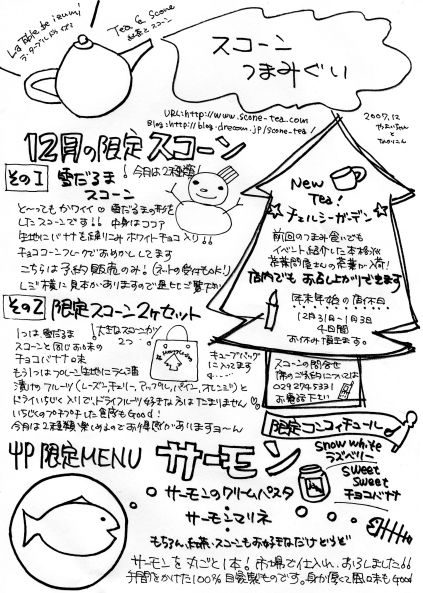 La Table de izumi
ラ・ターブル ドゥ イズミ
Tea & Scone
紅茶とスコーン
スコーン
つまみぐい
URL: http://www.scone-tea.com
Blog: http://blog.drecom.jp/scone-tea/
2007.12
12月の限定スコーン
今月は2種類!
その1 雪だるま
スコーン
と〜ってもカワイイ♡雪だるまの形を
したスコーンです!! 中身はココア
生地にバナナを練りこみ ホワイトチョコ入り!!
チョココーンフレークでおめかししてます
こちらは予約販売のみ!
New
Tea!
☆チェルシーガーデン☆
前回のつまみ食いでも
イベント紹介した本格派
紅茶問屋さんの茶葉が入荷!
店内でもお召し上がりできます
年末年始の店休日
12月31日〜1月3日
4日間
お休み頂きます。
その2 限定スコーン2ヶセット
大きなスコーンが
2つ…
1つは、雪だるま
スコーンと同じお味の
チョコバナナ味
もう1つはプレーン生地にラム酒
漬けフルーツ(レーズン、チェリー、アップル、パイン、オレンジ)と
ドライいちじく入りで、ドライフルーツ好きな方はたまりません♡
いちじくのプチプチした食感もGood!
今月は2種類楽しめるのでお得感がありますヨ〜ん
キューブバッグ
に入ってます
スコーンの問合せ
他のご予約については
029.274.5331
お電話下さい
限定コンフィチュール
snow white
ラズベリー
sweet
sweet
チョコバナナ
限定MENU サーモン
サーモンのクリームパスタ
サーモンマリネ
もちろん、紅茶・スコーンもお好きなだけどうぞ
サーモンを丸ごと1本! 市場で仕入れ、おろしました!!
手間をかけた100%自家製ものです。身が厚くて風味もGood